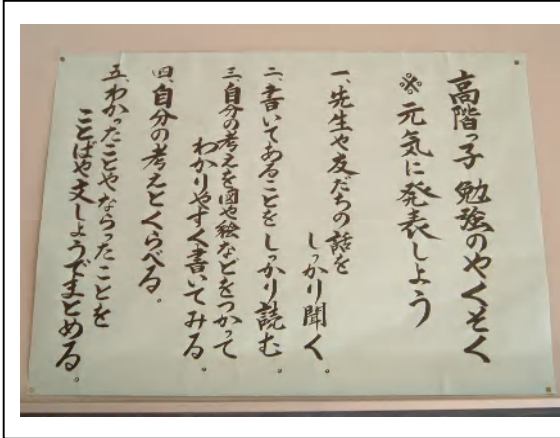 高階っ子 勉強のやくそく
※ 元気に発表しよう
一、先生や友だちの話を
しっかり聞く。
二、書いてあることをしっかり読む。
三、自分の考えを図や絵などをつかって
わかりやすく書いてみる。
四、自分の考えとくらべる。
五、わかったことやならったことを
ことばや文しょうでまとめる。